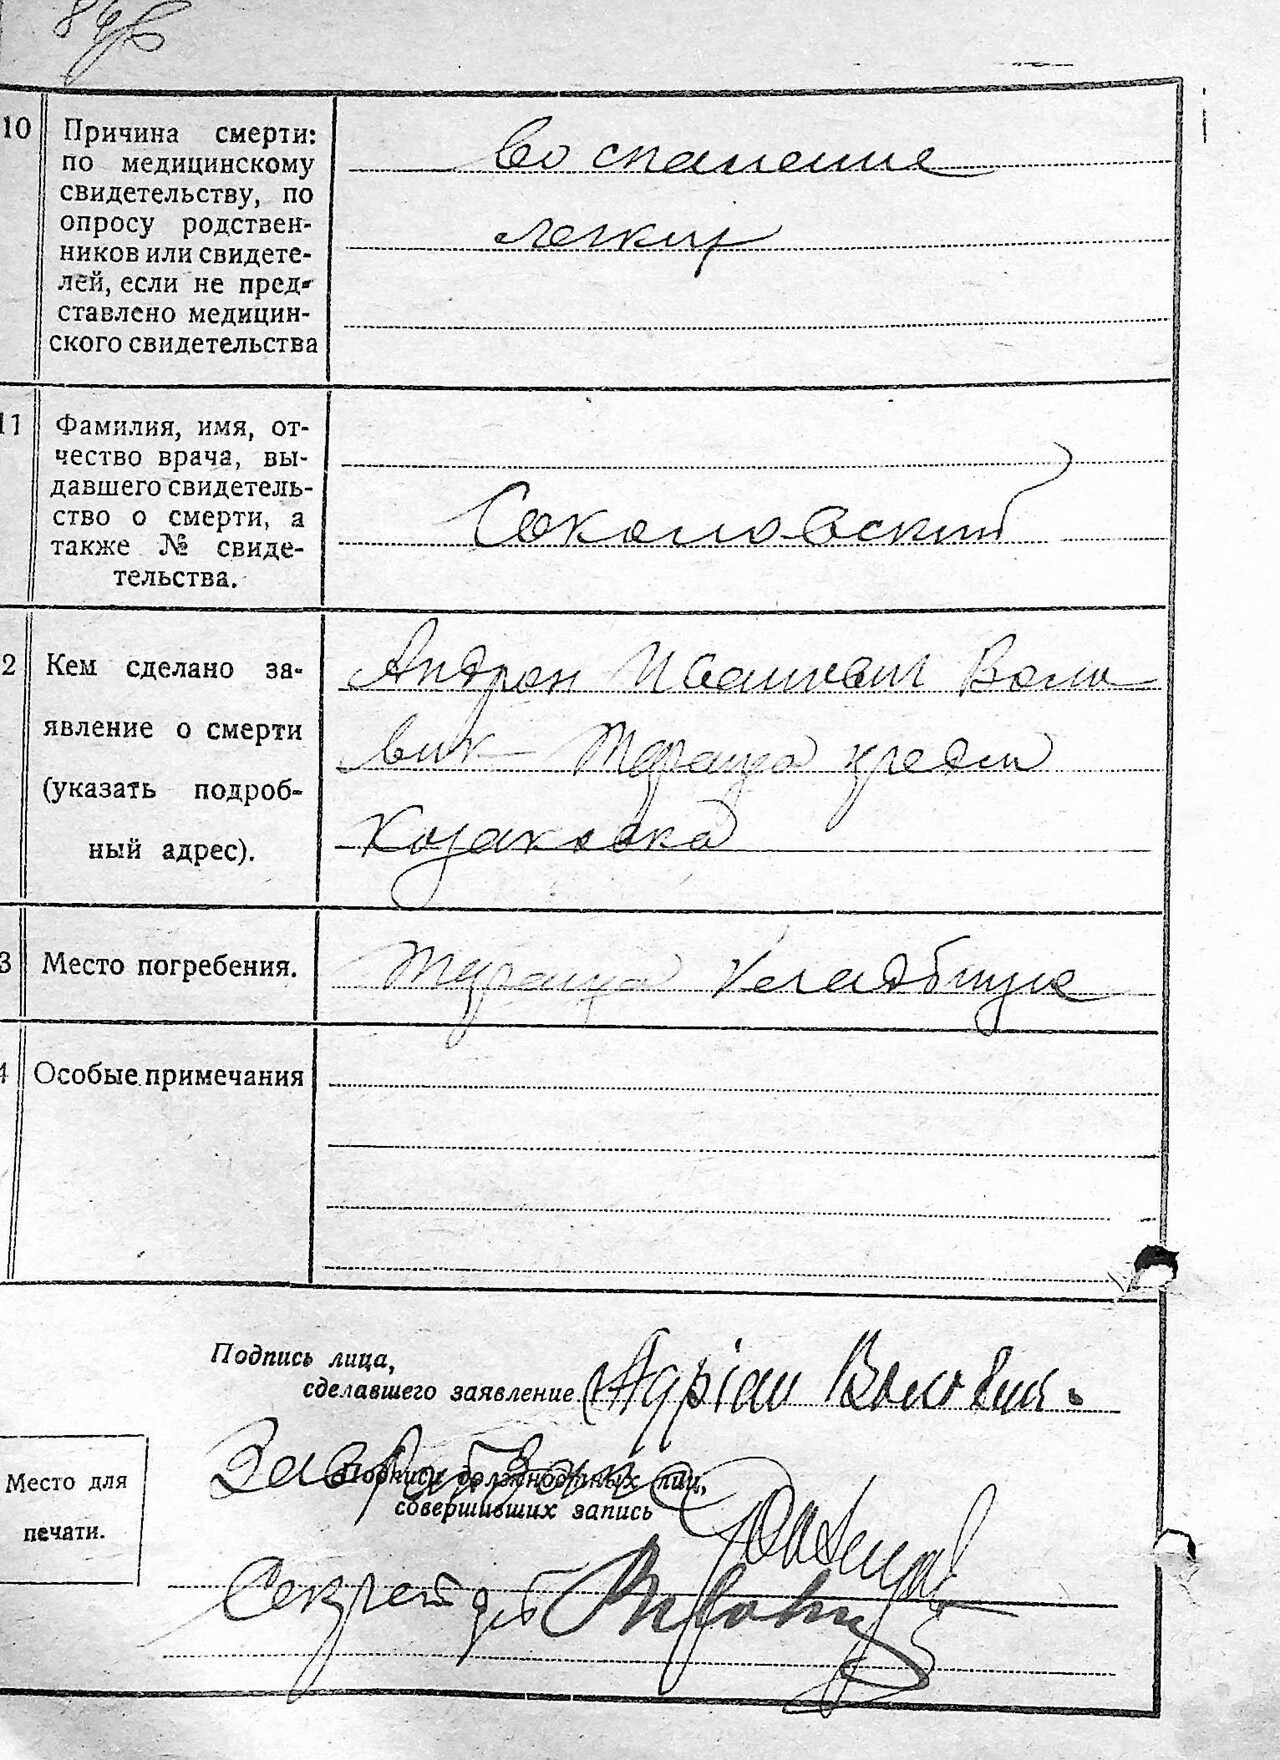 10
Причина смерти:
по медицинскому
свидетельству, по
опросу родствен-
ников или свидете-
лей, если не пред-
ставлено медицин-
ского свидетельства
воспаление
легких
11
Фамилия, имя, от-
чество врача, вы-
давшего свидетель-
ство о смерти, а
также № свиде-
тельства.
Соколовский
2
Кем сделано за-
явление о смерти
(указать подроб-
ный адрес).
Андрон Иванович Воло
вик Тараща
Козаковка
3
Место погребения.
Тараща кладбище
4
Особые примечания
Подпись лица,
сделавшего заявление
Адріан Воловик.
Место для
печати.
Подписи должностных лиц,
совершивших запись
Секретарь